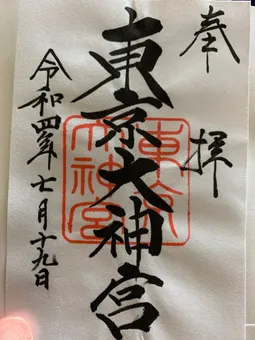 奉拝
東京大神宮
令和四年七月十九日
東京
大神宮